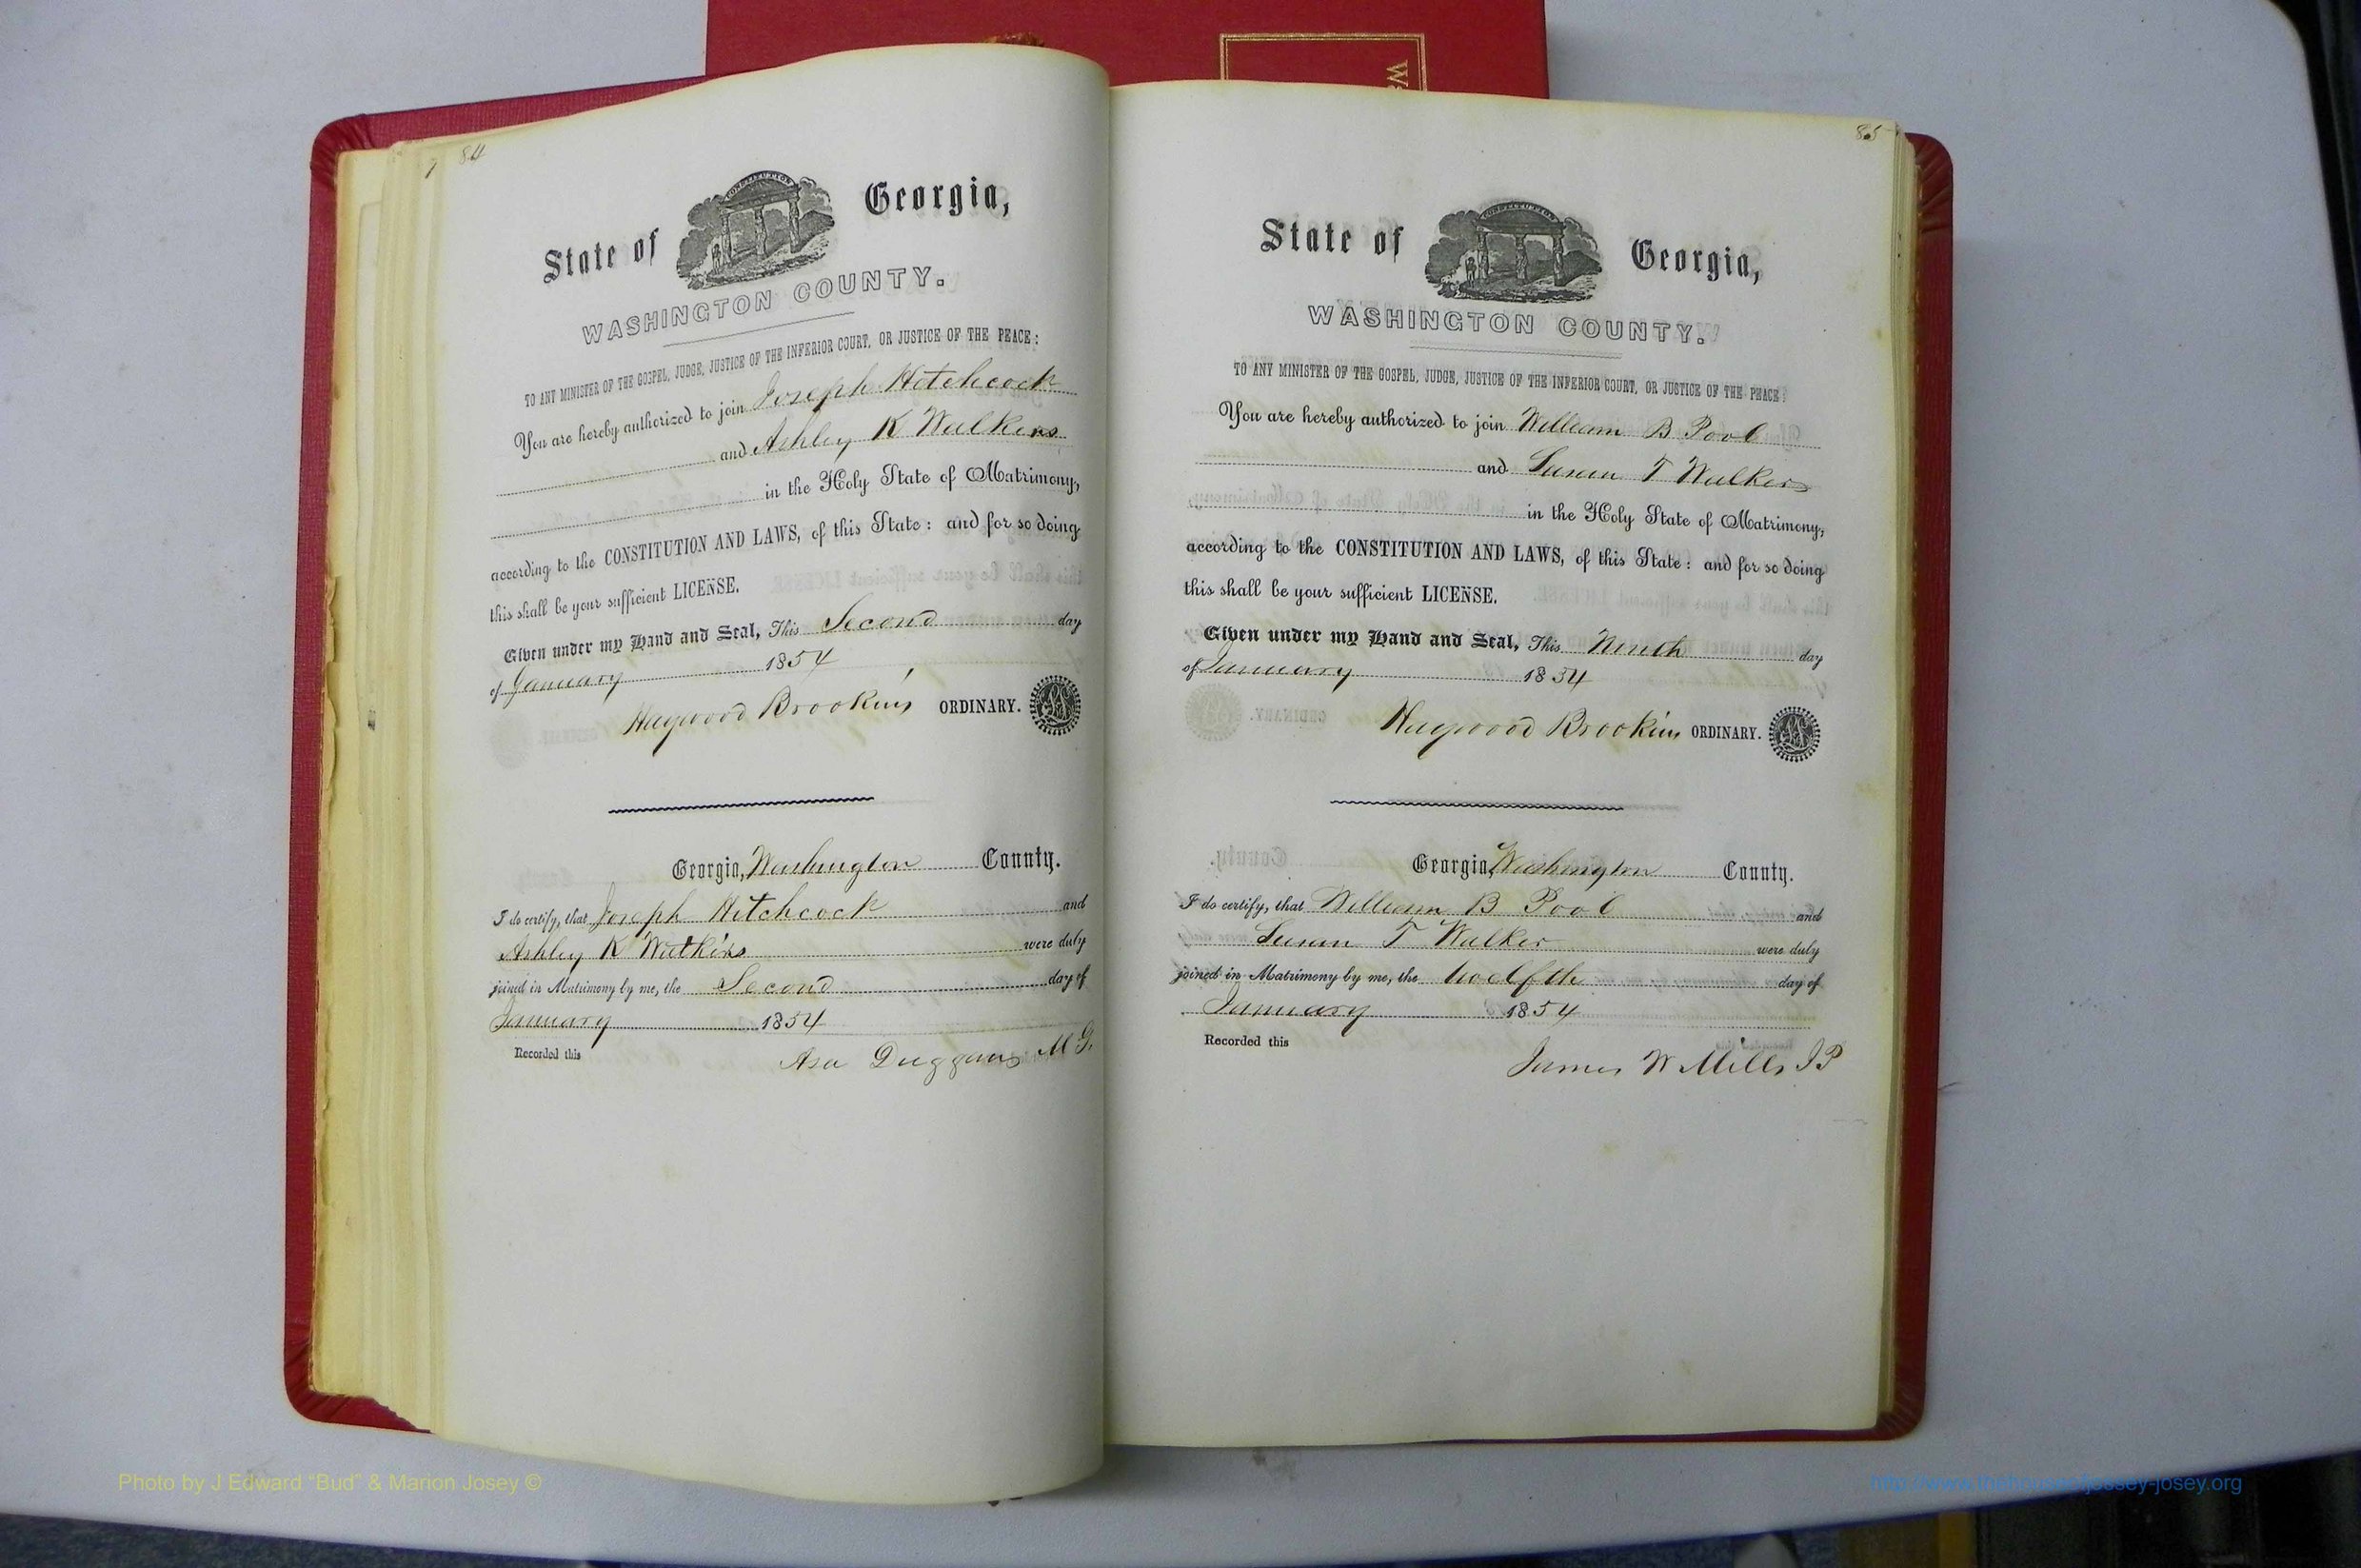 84
CONSTITUTION
State of Georgia,
WASHINGTON COUNTY.
TO ANY MINISTER OF THE GOSPEL, JUDGE, JUSTICE OF THE INFERIOR COURT, OR JUSTICE OF THE PEACE:
You are hereby authorized to join Joseph Hitchcock
and Ashley K Walkers
in the Holy State of Matrimony,
according to the CONSTITUTION AND LAWS, of this State: and for so doing
this shall be your sufficient LICENSE.
Given under my Hand and Seal, This Second day
of January 1854
Haywood Brookins ORDINARY.
Georgia, Washington County.
I do certify, that Joseph Hitchcock and
Ashley K Watkins were duly
joined in Matrimony by me, the Second day of
January 1854
Recorded this
Asa Duggan M G.
85
CONSTITUTION
State of Georgia,
WASHINGTON COUNTY.
TO ANY MINISTER OF THE GOSPEL, JUDGE, JUSTICE OF THE INFERIOR COURT, OR JUSTICE OF THE PEACE:
You are hereby authorized to join William B Pool
and Susan T Walker
in the Holy State of Matrimony,
according to the CONSTITUTION AND LAWS, of this State: and for so doing
this shall be your sufficient LICENSE.
Given under my Hand and Seal, This Nenth day
of January 1854
Haywood Brookins ORDINARY.
Georgia, Washington County.
I do certify, that William B Pool and
Susan T Walker were duly
joined in Matrimony by me, the twelfth day of
January 1854
Recorded this
James W Mills JP
Photo by J Edward “Bud” & Marion Josey ©
http://www.thehouseofjossey-josey.org